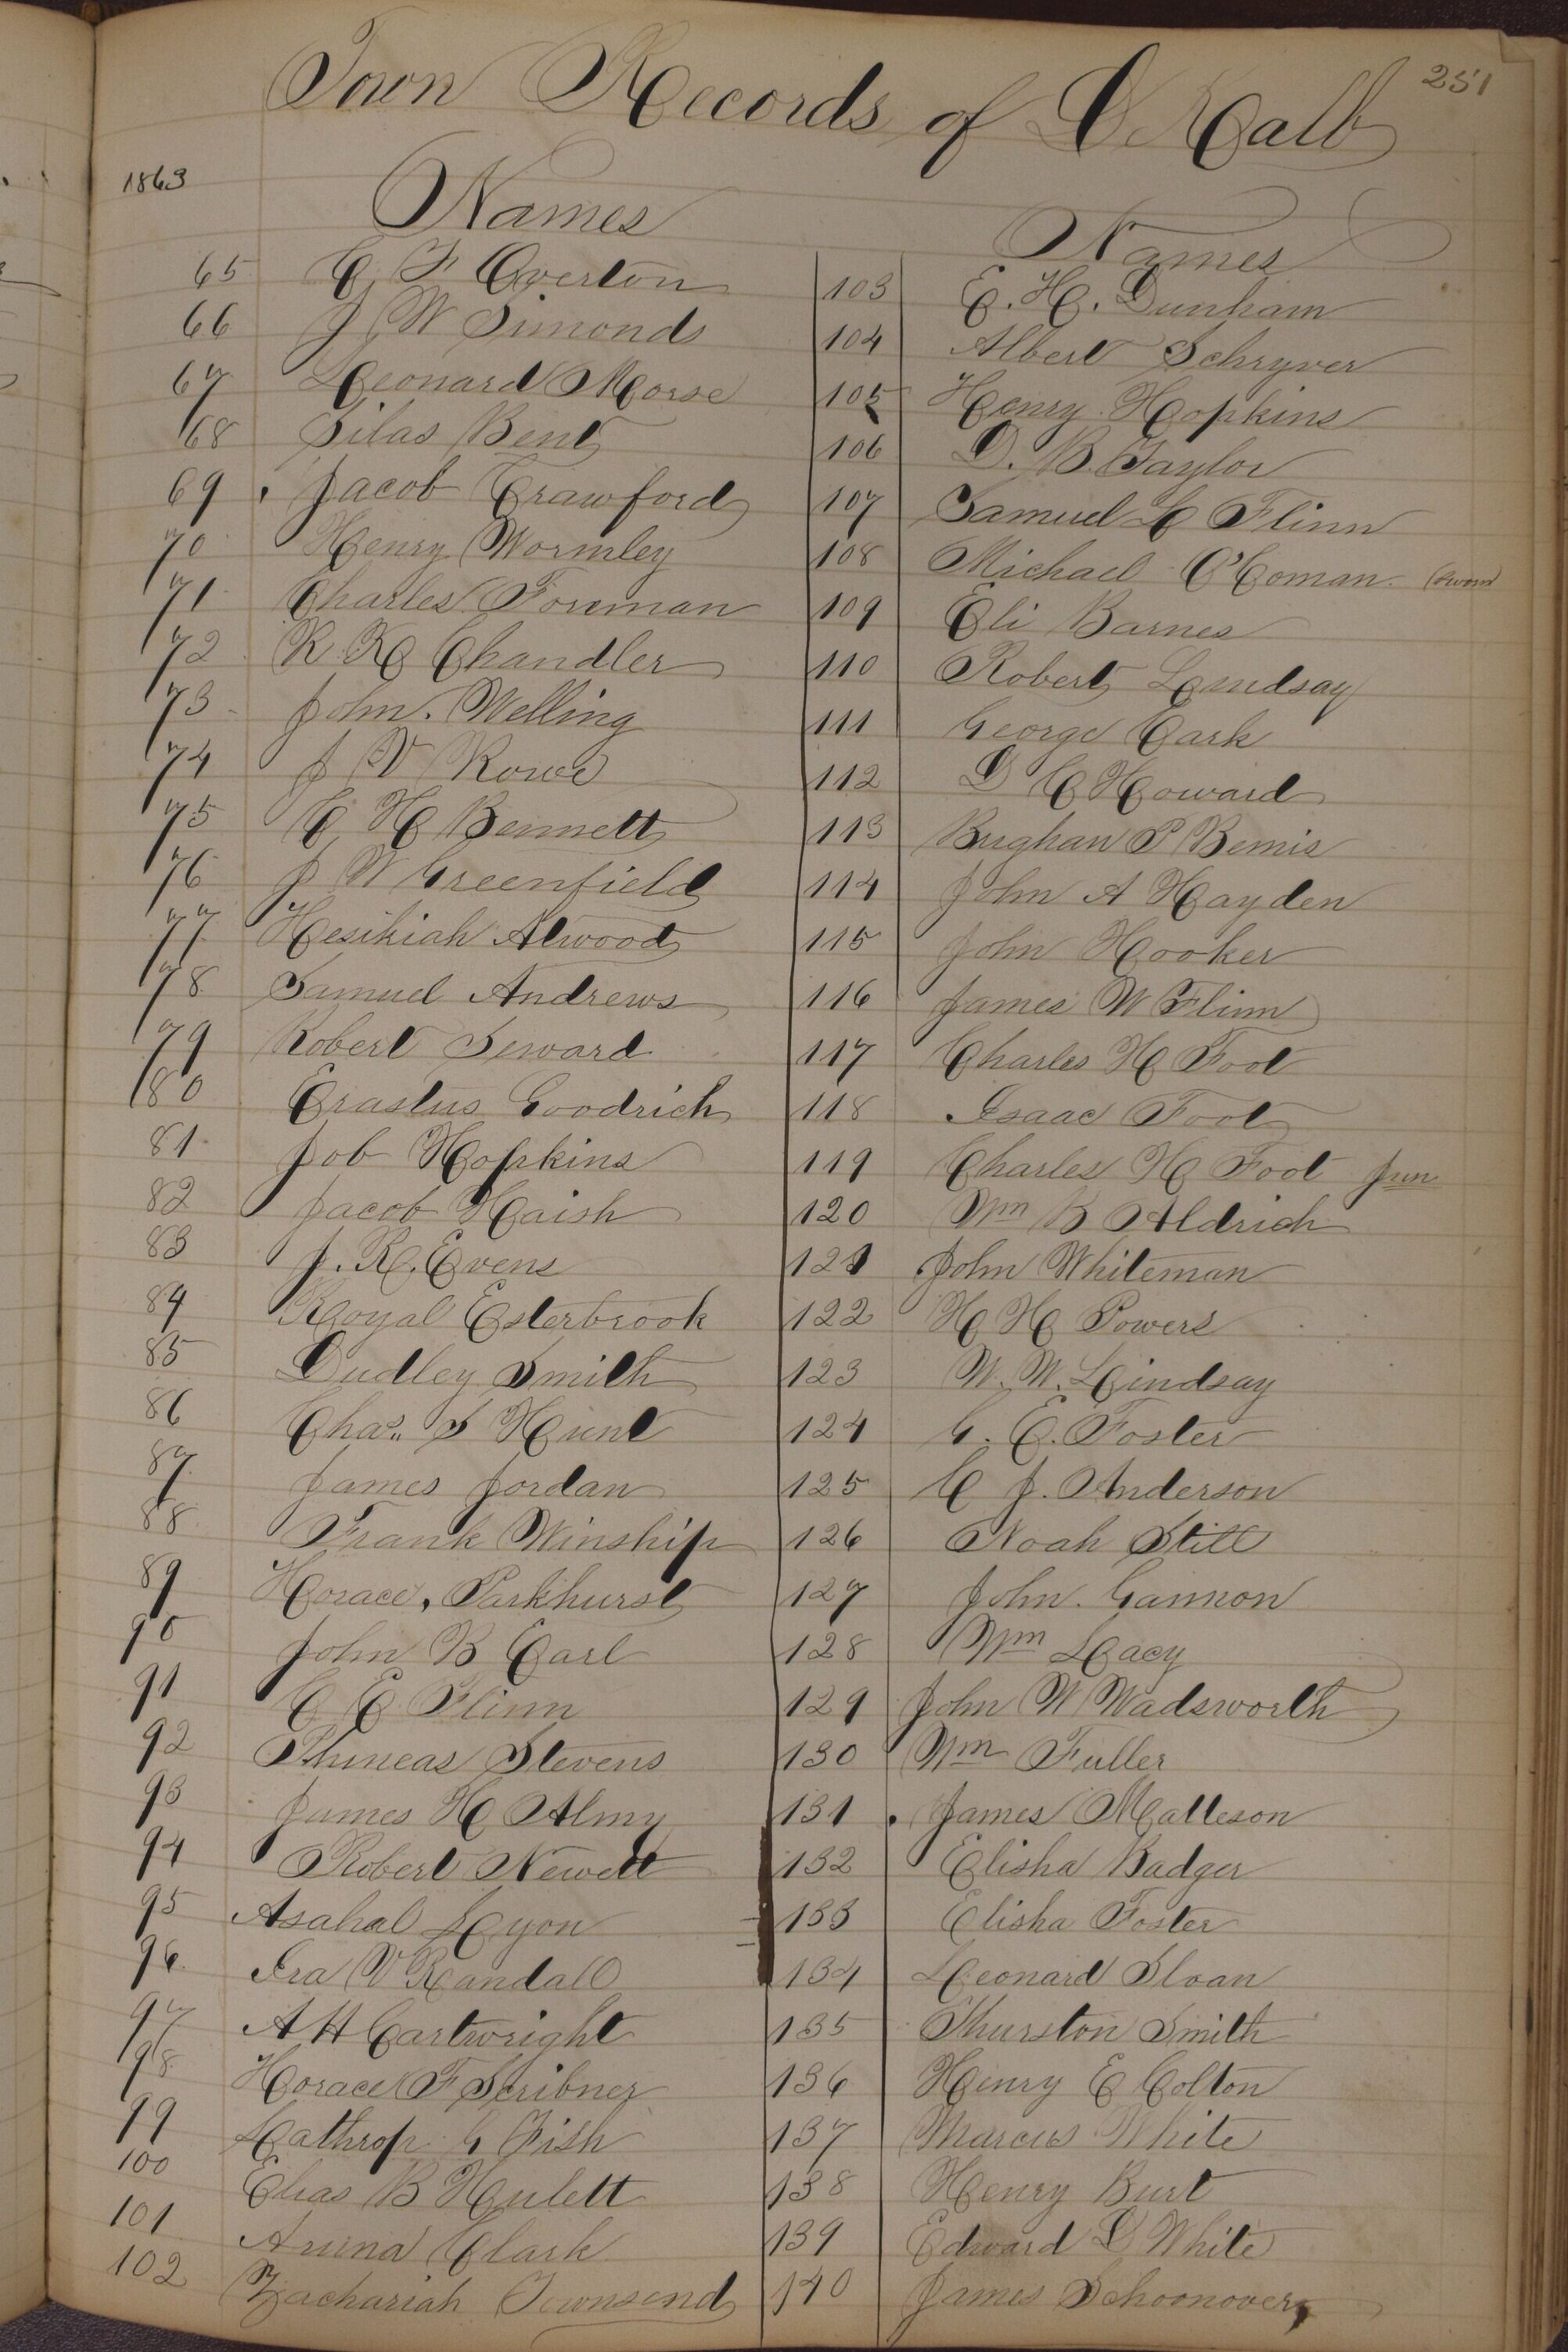 251
Town Records of DeKalb
1863
Names
65 C. F. Overton
66 J W Simonds
67 Leonard Morse
68 Silas Bent
69 Jacob Crawford
70 Henry Wormley
71 Charles Foreman
72 R K Chandler
73 John Welling
74 J V Rowe
75 C H Bennett
76 J W Greenfield
77 Hesikiah Atwood
78 Samuel Andrews
79 Robert Seward
80 Erastus Goodrich
81 Job Hopkins
82 Jacob Haish
83 J. R. Evens
84 Royal Esterbrook
85 Dudley Smith
86 Chas. S Hunt
87 James Jordan
88 Frank Winship
89 Horace Parkhurst
90 John B Earl
91 C E Flinn
92 Phineas Stevens
93 James H Almy
94 Robert Newett
95 Asahal Lyon
96 Ira V Randall
97 A H Cartwright
98 Horace F Scribner
99 Lathrop G Fish
100 Elias B Hulett
101 Clark
102 Zachariah Townsend
Names
103 E. H. Dunham
104 Albert Schryver
105 Henry Hopkins
106 D. B Taylor
107 Samuel L Flinn
108 Michael O'Coman (sworn
109 Eli Barnes
110 Robert Lindsay
111 George Cark
112 D C Howard
113 P Bemis
114 John A Hayden
115 John Hooker
116 James W Flinn
117 Charles H Foot
118 Isaac Foot
119 Charles H Foot Jun
120 Wm B Aldrich
121 John Whiteman
122 H H Powers
123 W. W. Lindsay
124 G. E. Foster
125 C J. Anderson
126 Noah Still
127 John. Gannon
128 Wm Lacy
129 John W Wadsworth
130 Wm Fuller
131 James Matteson
132 Elisha Badger
133 Elisha Foster
134 Leonard Sloan
135 Thurston Smith
136 Henry E Colton
137 Marcus White
138 Henry Burt
139 Edward D White
140 James Schoonover